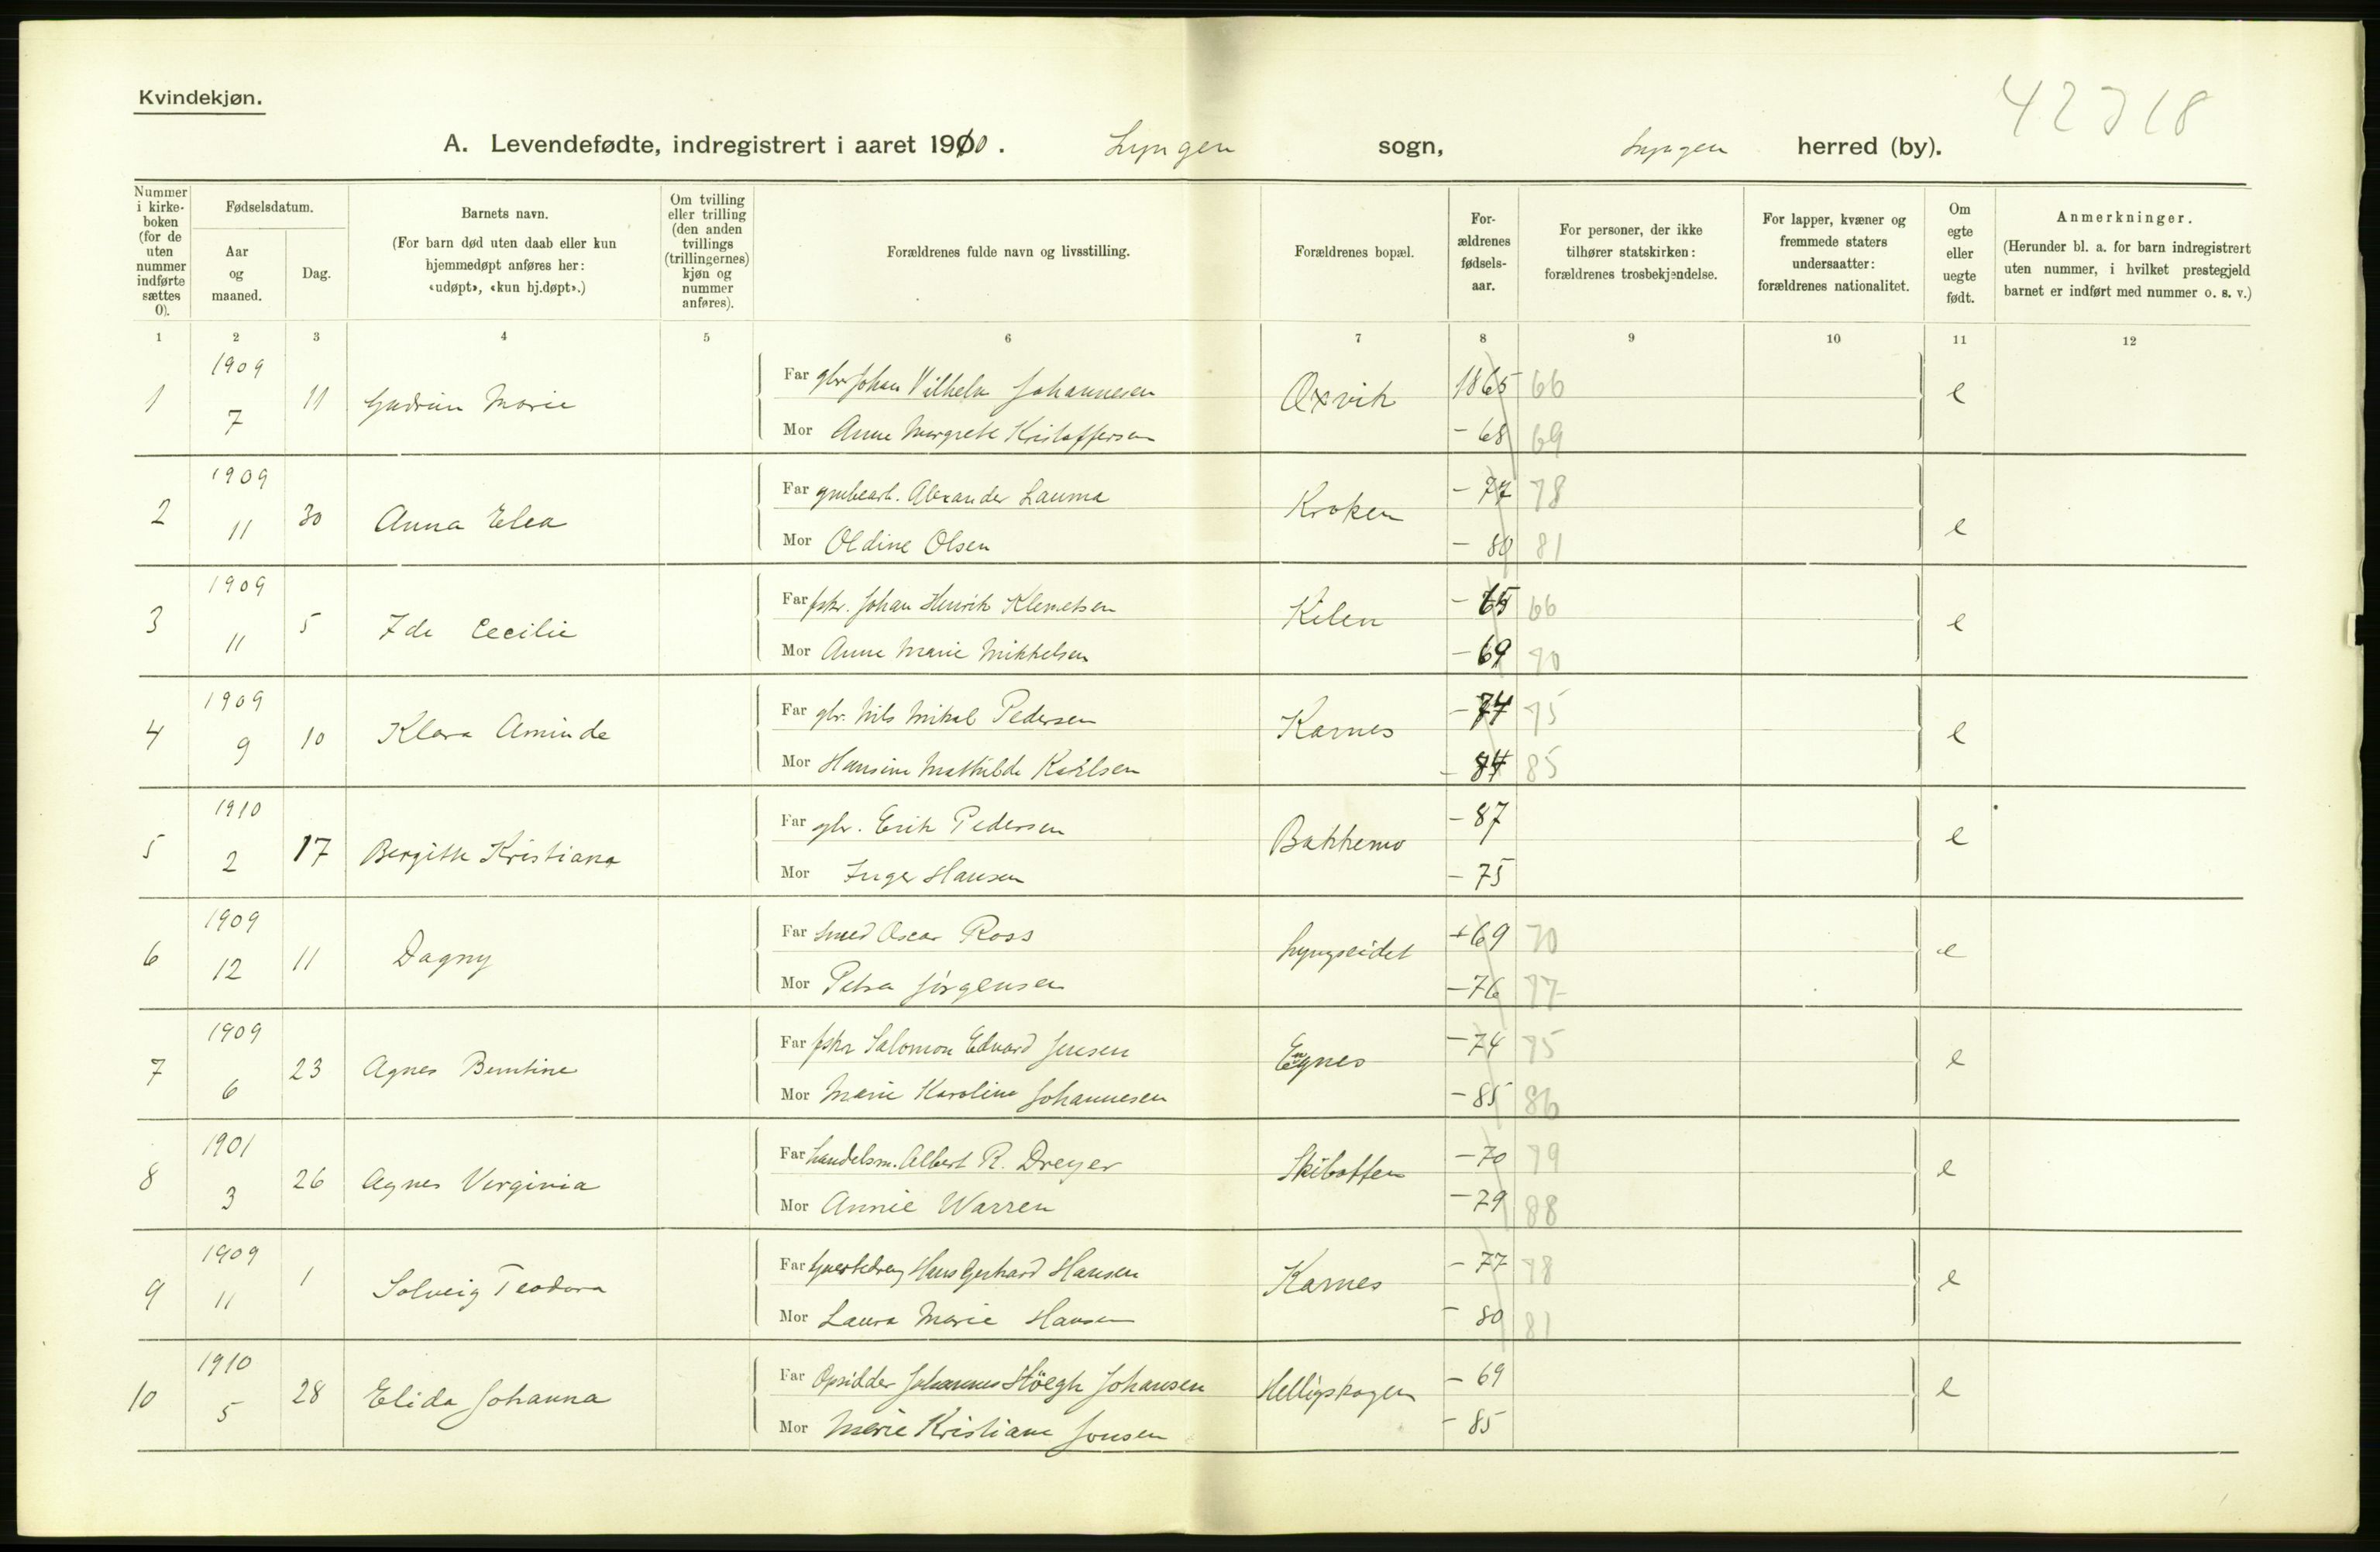 Kvindekjøn.
42718
A. Levendefødte, indregistrert i aaret 1910. Lyngen sogn, Lyngen herred (by).
Nummer i kirkeboken (for de uten nummer indførte sættes 0).
Fødselsdatum.
Aar og maaned.
Dag.
Barnets navn.
(For barn død uten daab eller kun hjemmedøpt anføres her: «udøpt», «kun hj.døpt».)
Om tvilling eller trilling (den anden tvillings (trillingernes) kjøn og nummer anføres).
Forældrenes fulde navn og livsstilling.
Forældrenes bopæl.
Forældrenes fødselsaar.
For personer, der ikke tilhører statskirken: forældrenes trosbekjendelse.
For lapper, kvæner og fremmede staters undersaatter: forældrenes nationalitet.
Om egte eller uegte født.
Anmerkninger.
(Herunder bl. a. for barn indregistrert uten nummer, i hvilket prestegjeld barnet er indført med nummer o. s. v.)
1 2 3 4 5 6 7 8 9 10 11 12
1 1909 7 11 Gudrun Marie Far gbr Johan Vilhelm Johannesen Oxvik 1865 66 e
Mor Anne Margrete Kristoffersen - 68 69
2 1909 11 30 Anna Elea Far grubearb. Alexander Lauma Kroken - 77 78 e
Mor Oldine Olsen - 80 81
3 1909 11 5 Ida Cecilie Far fskr. Johan Henrik Klemetsen Kilen - 65 66 e
Mor Anne Marie Mikkelsen - 69 70
4 1909 9 10 Klara Aminda Far gbr. Nils Mikal Pedersen Karnes - 74 75 e
Mor Hansine Mathilde Karlsen - 84 85
5 1910 2 17 Bergitte Kristiana Far gbr. Erik Pedersen Bakkemo - 87 e
Mor Inger Hansen - 75
6 1909 12 11 Dagny Far Smed Oscar Ross Lyngseidet + 69 70 e
Mor Petra Jörgensen - 76 77
7 1909 6 23 Agnes Berntine Far fskr Salomon Edvard Jensen - 74 75 e
Mor Marie Karoline Johannesen - 85 86
8 1901 3 26 Agnes Virginia Far handelsm. Albert R. Dreyer Skibotten - 70 79 e
Mor Annie Warren - 79 88
9 1909 11 1 Solveig Teodora Far Hans Gerhard Hansen Karnes - 77 78 e
Mor Laura Marie Hansen - 80 81
10 1910 5 28 Elida Johanna Far Opsidder Johannes Höegh Johansen Helligskogen - 69 e
Mor Marie Kristiane Jonsen - 85